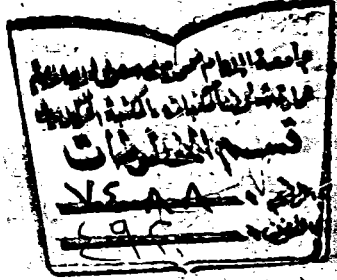 جامعة الإمام محمد بن سعود الإسلامية
عمادة شئون المكتبات المكتبة المركزية
قسم المخطوطات
الرقم: ٧٤٨٨